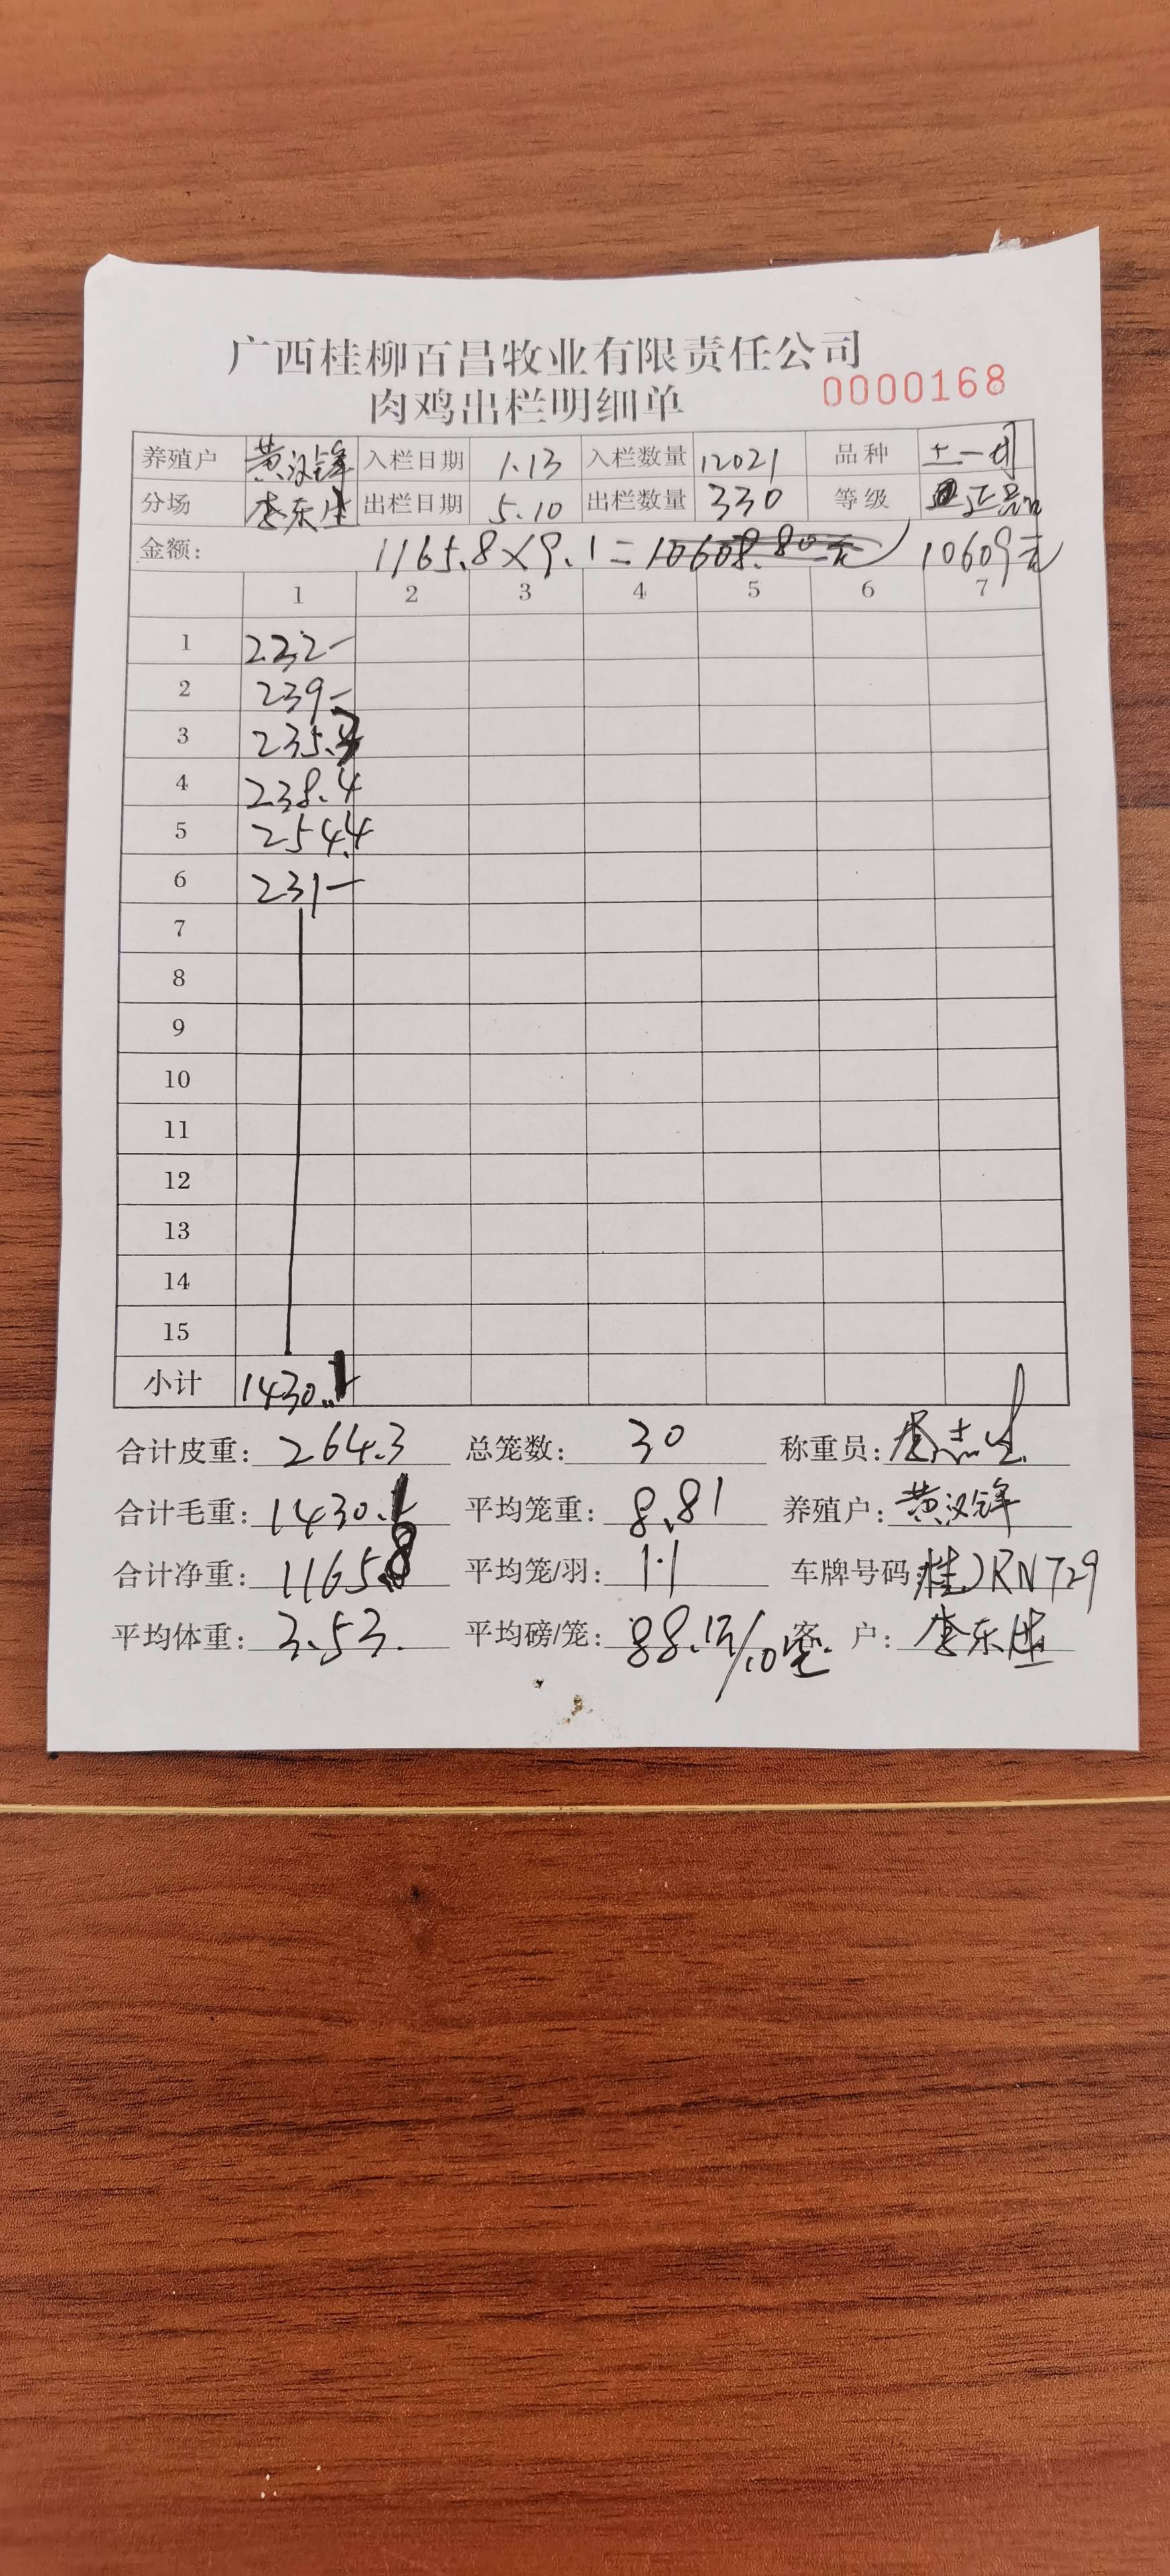 广西桂柳百昌牧业有限责任公司
肉鸡出栏明细单 0000168
养殖户 黄汉锋 入栏日期 1.13 入栏数量 12021 品种 土一
分场 李东 出栏日期 5.10 出栏数量 330 等级 正品
金额: 1165.8×9.1=10608.80元 10609元
1 2 3 4 5 6 7
1 232-
2 239-
3 235.3
4 238.4
5 254.4
6 231-
7
8
9
10
11
12
13
14
15
小计 1430.1
合计皮重: 264.3 总笼数: 30 称重员:
合计毛重: 1430.1 平均笼重: 8.81 养殖户: 黄汉锋
合计净重: 1165.8 平均笼/羽: 11 车牌号码: 桂JRN729
平均体重: 3.53. 平均磅/笼: 88.1 客 户: 李东